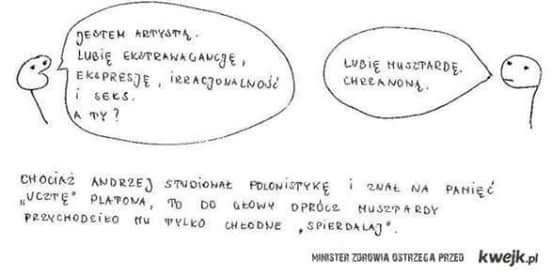 JESTEM ARTYSTĄ.
LUBIĘ EKSTRAWAGANCJĘ,
EKSPRESJĘ, IRRACJONALNOŚĆ
I SEKS.
A TY?
LUBIĘ MUSZTARDĘ.
CHRZANOWĄ.
CHOCIAŻ ANDRZEJ STUDIOWAŁ POLONISTYKĘ I ZNAŁ NA PAMIĘĆ
„UCZTĘ" PLATONA, TO DO GŁOWY OPRÓCZ MUSZTARDY
PRZYCHODZIŁO MU TYLKO CHŁODNE „SPIERDALAJ".
MINISTER ZDROWIA OSTRZEGA PRZED kwejk.pl